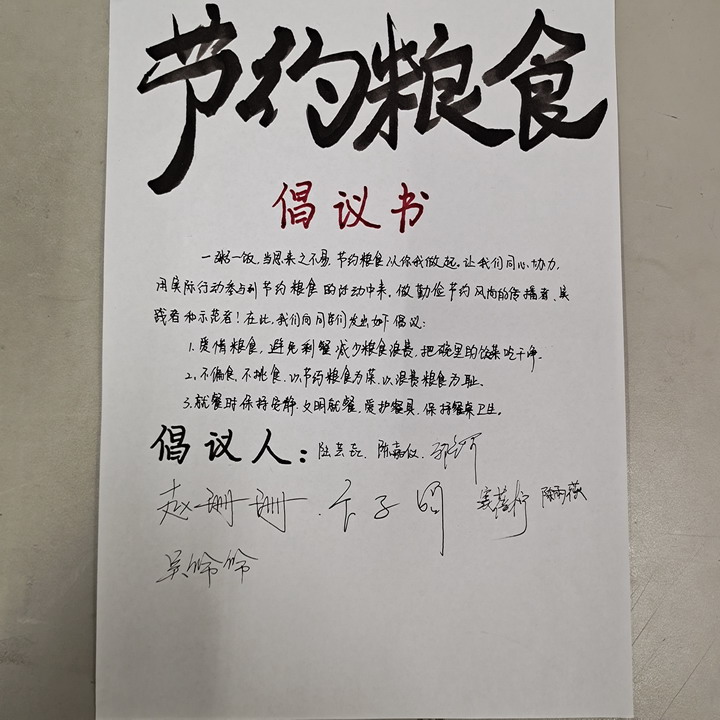 节约粮食
倡议书
一粥一饭,当思来之不易,节约粮食从你我做起。让我们同心协力,
用实际行动参与到节约粮食的行动中来。做勤俭节约风尚的传播者、实
践者和示范者!在此,我们向同学们发出如下倡议:
1. 爱惜粮食,避免剩餐减少粮食浪费,把碗里的饭菜吃干净.
2. 不偏食、不挑食、以节约粮食为荣、以浪费粮食为耻、
3. 就餐时保持安静、文明就餐,爱护餐具,保持餐桌卫生。
倡议人: 陈嘉仪、
赵珊珊 陈雨薇
吴怜怜